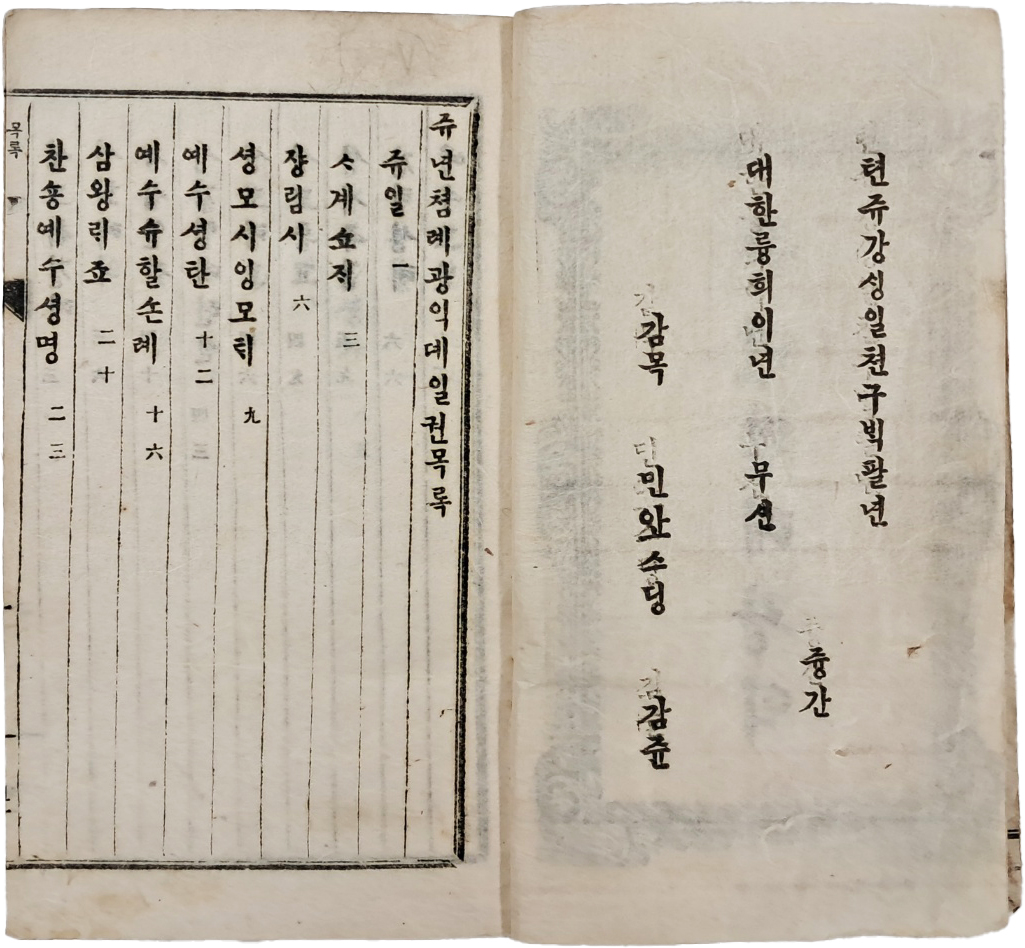 텬쥬강ᄉᆡᆼ일쳔구ᄇᆡᆨ팔년
대한륭희이년 무신
즁간
감목 민와스딩 감쥰
쥬년쳠례광익뎨일권목록
쥬일 一
ᄉᆞ계쇼ᄌᆡ 三
쟝림시 六
셩모시잉모ᄐᆡ 九
예수셩탄 十二
예수슈할손례 十六
삼왕ᄅᆡ죠 二十
찬숑예수셩명 二三
목록